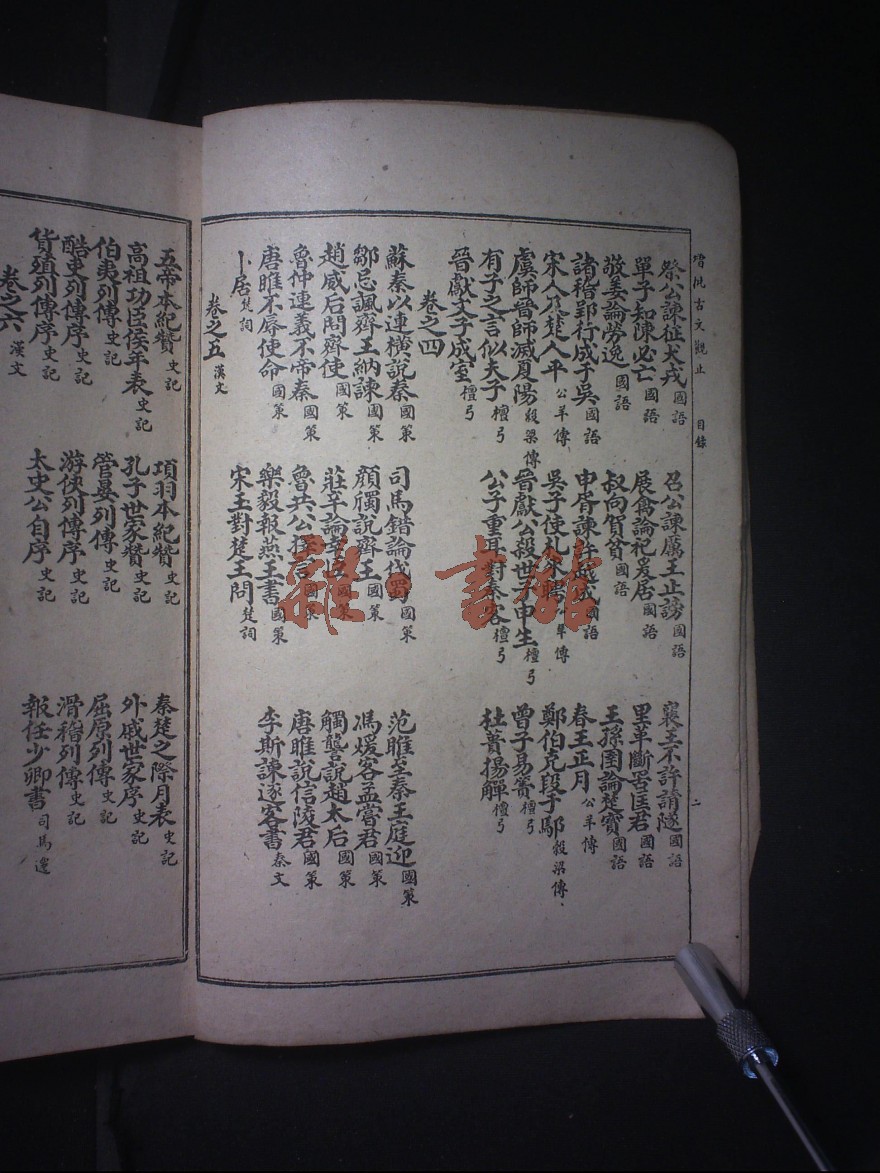 增批古文觀止 目錄 二
祭公諫征犬戎 國語 召公諫厲王止謗 國語 襄王不許請隧 國語
單子知陳必亡 國語 展禽論祀爰居 國語 里革斷罟匡君 國語
敬姜論勞逸 國語 叔向賀貧 國語 王孫圉論楚寶 國語
諸稽郢行成于吳 國語 申胥諫許越成 國語 春王正月 公羊傳
宋人及楚人平 公羊傳 吳子使札來聘 公羊傳 鄭伯克段于鄢 穀梁傳
虞師晉師滅夏陽 穀梁傳 晉獻公殺世子申生 檀弓 曾子易簀 檀弓
有子之言似夫子 檀弓 公子重耳對秦客 檀弓 杜蕢揚觶 檀弓
晉獻文子成室 檀弓
卷之四
蘇秦以連橫說秦 國策 司馬錯論伐蜀 國策 范睢至秦王庭迎 國策
鄒忌諷齊王納諫 國策 顏斶說齊王 國策 馮煖客孟嘗君 國策
趙威后問齊使 國策 莊辛論幸臣 國策 觸讋說趙太后 國策
魯仲連義不帝秦 國策 魯共公擇言 國策 唐睢說信陵君 國策
唐睢不辱使命 國策 樂毅報燕王書 國策 李斯諫逐客書 秦文
卜居 楚詞 宋玉對楚王問 楚詞
卷之五 漢文
五帝本紀贊 史記 項羽本紀贊 史記 秦楚之際月表 史記
高祖功臣侯年表 史記 孔子世家贊 史記 外戚世家序 史記
伯夷列傳 史記 管晏列傳 史記 屈原列傳 史記
酷吏列傳序 史記 游俠列傳序 史記 滑稽列傳 史記
貨殖列傳序 史記 太史公自序 史記 報任少卿書 司馬遷
卷之六 漢文
雜·書館